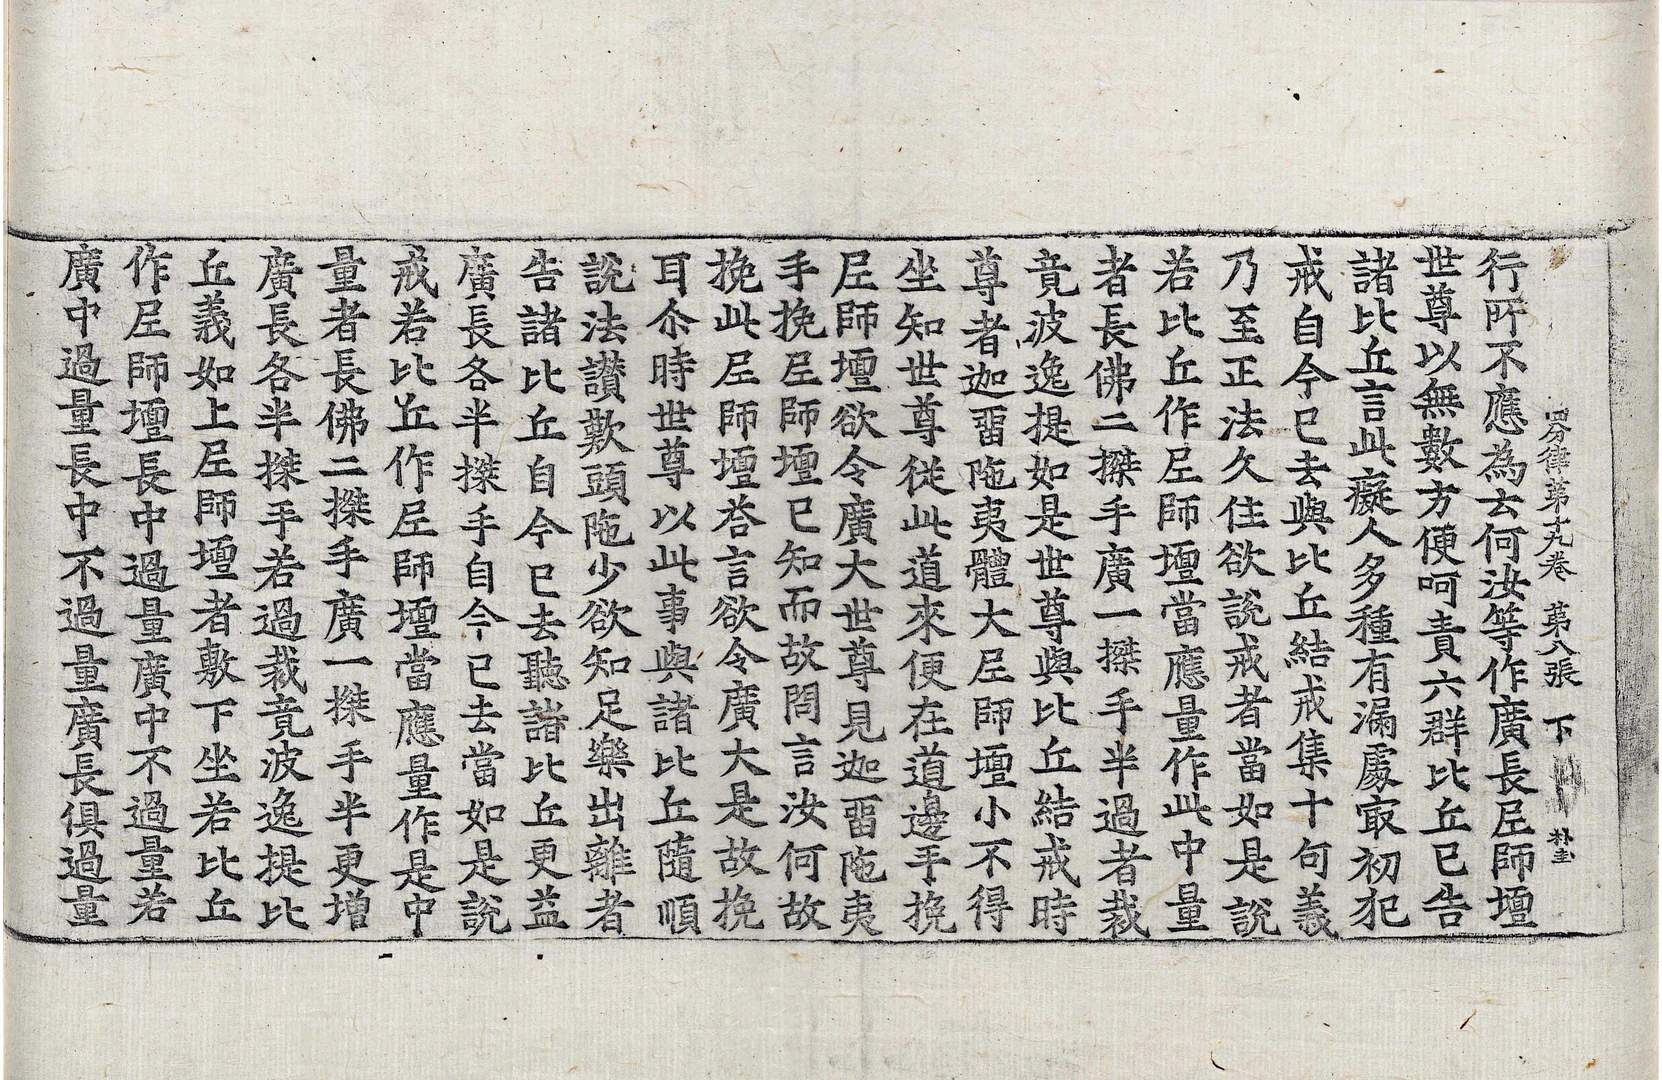 四分律第十九卷　第八張　下　朴圭
行所不應為云何汝等作廣長尼師壇
世尊以無數方便呵責六群比丘已告
諸比丘言此癡人多種有漏處冣初犯
戒自今已去與比丘結戒集十句義
乃至正法久住欲說戒者當如是說
若比丘作尼師壇當應量作此中量
者長佛二搩手廣一搩手半過者裁
竟波逸提如是世尊與比丘結戒時
尊者迦留陁夷體大尼師壇小不得
坐知世尊從此道來便在道邊手挽
尼師壇欲令廣大世尊見迦留陁夷
手挽尼師壇已知而故問言汝何故
挽此尼師壇荅言欲令廣大是故挽
耳尒時世尊以此事與諸比丘隨順
說法讃歎頭陁少欲知足樂出離者
告諸比丘自今已去聽諸比丘更益
廣長各半搩手自今已去當如是說
戒若比丘作尼師壇當應量作是中
量者長佛二搩手廣一搩手半更增
廣長各半搩手若過裁竟波逸提比
丘義如上尼師壇者敷下坐若比丘
作尼師壇長中過量廣中不過量若
廣中過量長中不過量廣長俱過量